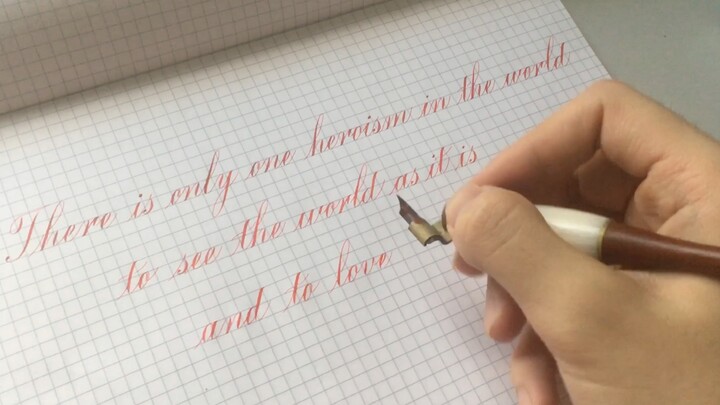 There is only one heroism in the world
to see the world as it is
and to love